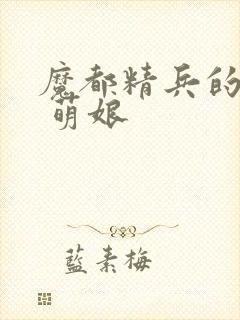 魔都精兵的
萌娘
藍素梅